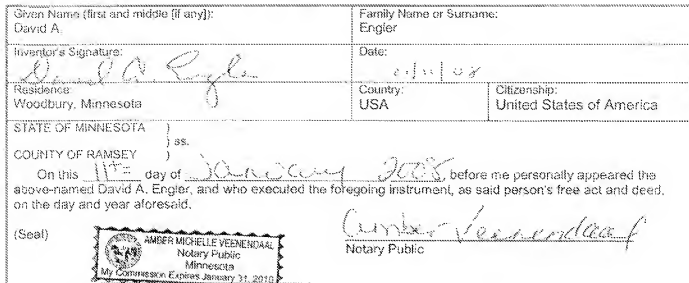 Given Name (first and middle [if any]):
David A.
Family Name or Surname:
Engler
Inventor's Signature:
David A. Engler
Date:
01/11/08
Residence:
Woodbury, Minnesota
Country:
USA
Citizenship:
United States of America
STATE OF MINNESOTA )
) ss.
COUNTY OF RAMSEY )
On this 11th day of January 2008, before me personally appeared the
above-named David A. Engler, and who executed the foregoing instrument, as said person's free act and deed,
on the day and year aforesaid.
(Seal)
AMBER MICHELLE VEENENDAAL
Notary Public
Minnesota
My Commission Expires January 31, 2010
Amber Veenendaal
Notary Public